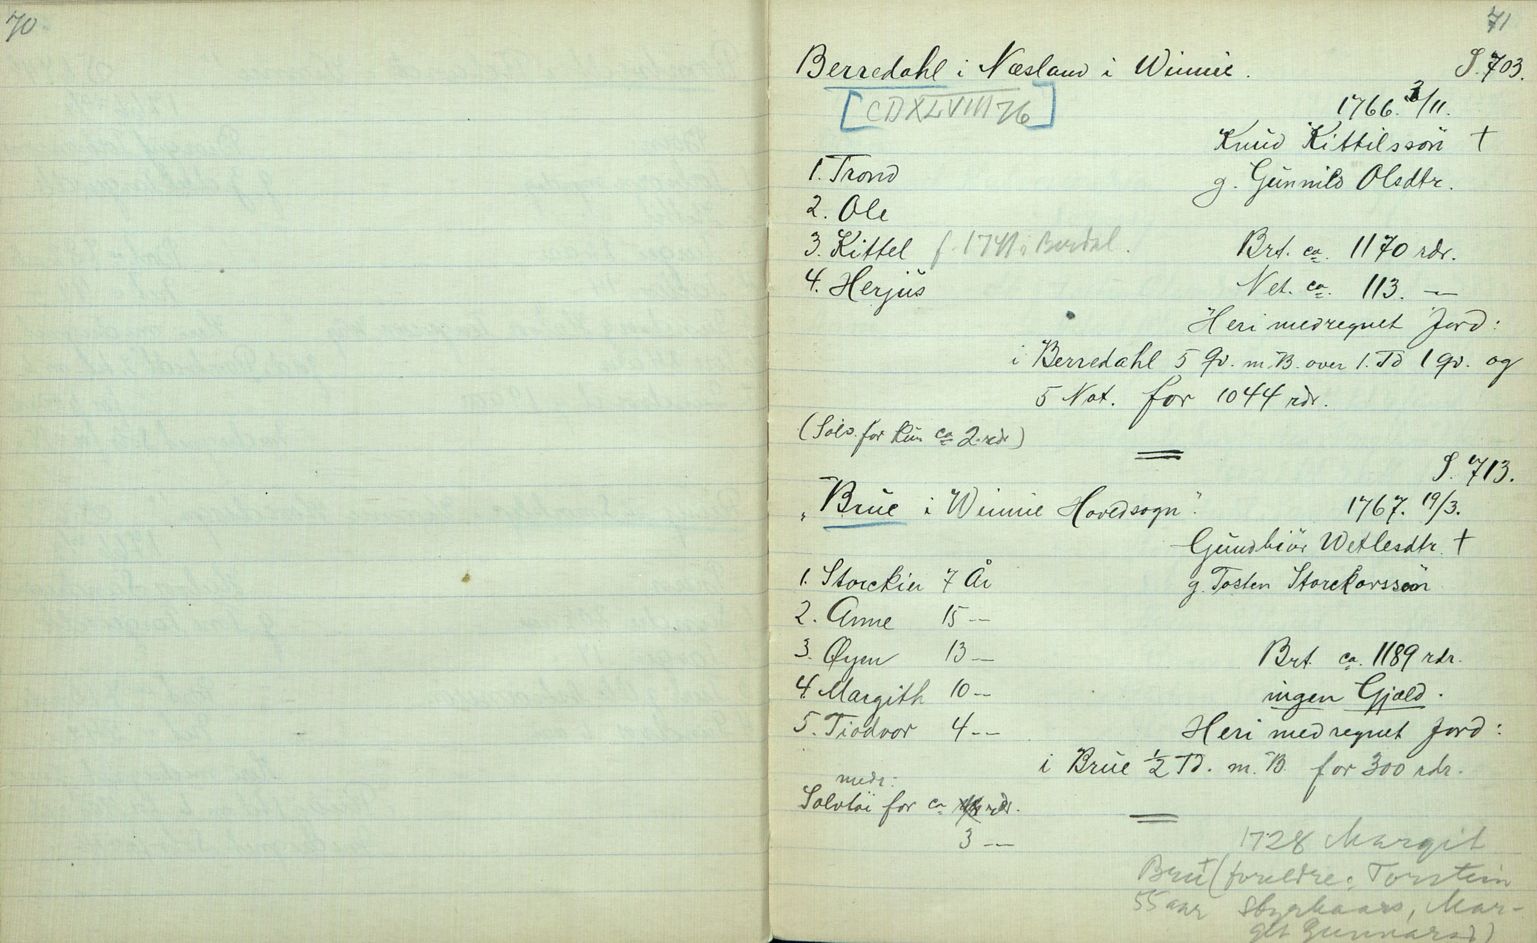 70
71
Berredahl i Næsland i Winnie. S. 703.
[CDXLVIII 76]
1766. 3/11.
Knud Kittilssön †
g. Gunnild Olsdtr.
1. Trond
2. Ole
3. Kittel f. 1741 i Berdal.
4. Herjus
Brt. ca. 1170 rdr.
Net. ca. 113. —
Heri medregnet Jord:
i Berredahl 5 Qv. m. B. over 1. Td 1 qv. og
5 Not. for 1044 rdr.
(Sølv for kun ca 2 rdr)
S. 713.
"Brue i Winnie Hovedsogn". 1767. 19/3.
Gundbiör Wetlesdtr. †
g. Tosten Storckorssön
1. Storckier 7 År
2. Anne 15 —
3. Øyen 13 —
4. Margith 10 —
5. Tiodvor 4 —
Brt. ca. 1189 rdr.
ingen Gjæld.
Heri medregnet Jord:
i Brue ½ Td. m. B. for 300 rdr.
medr:
Sølvtöi for ca rdr.
3 —
1728 Margit
Bru† (foreldre: Torstein
55 aar Styrkaars, Mar-
git Gunnarsd)